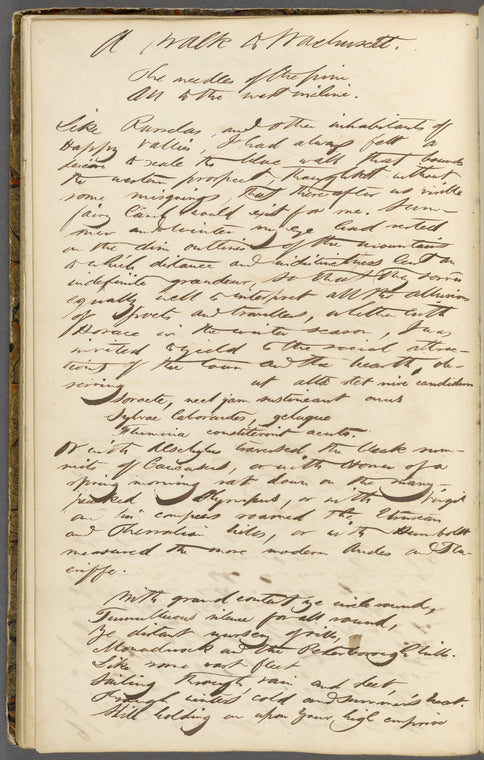 A Walk to Wachusett.
The needles of the pine
All to the west incline.
Like Rasselas, and other inhabitants of
Happy Vallies, I had always felt a
desire to scale the blue wall that bounds
the western prospect, though not without
some misgivings, that thereafter no visible
fairy land would exist for me. Sum-
mer and winter my eye had rested
on the dim outline of the mountains
to which distance and indistinctness lent an
indefinite grandeur, so that they served
equally well to interpret all the allusions
of poets and travellers, whether with
Horace in the winter season, I was
invited to yield to the social attrac-
tions of the town and the hearth, ob-
serving ut alta stet nive candidum
Soracte, nec jam sustineant onus
Sylvae laborantes, geluque
Flumina constiterint acuto.
Or with Aeschylus traversed the bleak sum-
mits of Caucasus, or with Homer of a
spring morning sat down on the many-
peaked Olympus, or with Virgil
and his compeers roamed the Etrurian
and Thessalian hills, or with Humboldt
measured the more modern Andes and Ten-
eriffe.
With grand content ye circle round,
Tumultuous silence for all sound,
Ye distant nursery of rills,
Monadnock and the Peterborough hills.
Like some vast fleet
Sailing through rain and sleet,
Through winter's cold and summer's heat.
Still holding on upon your high emprise